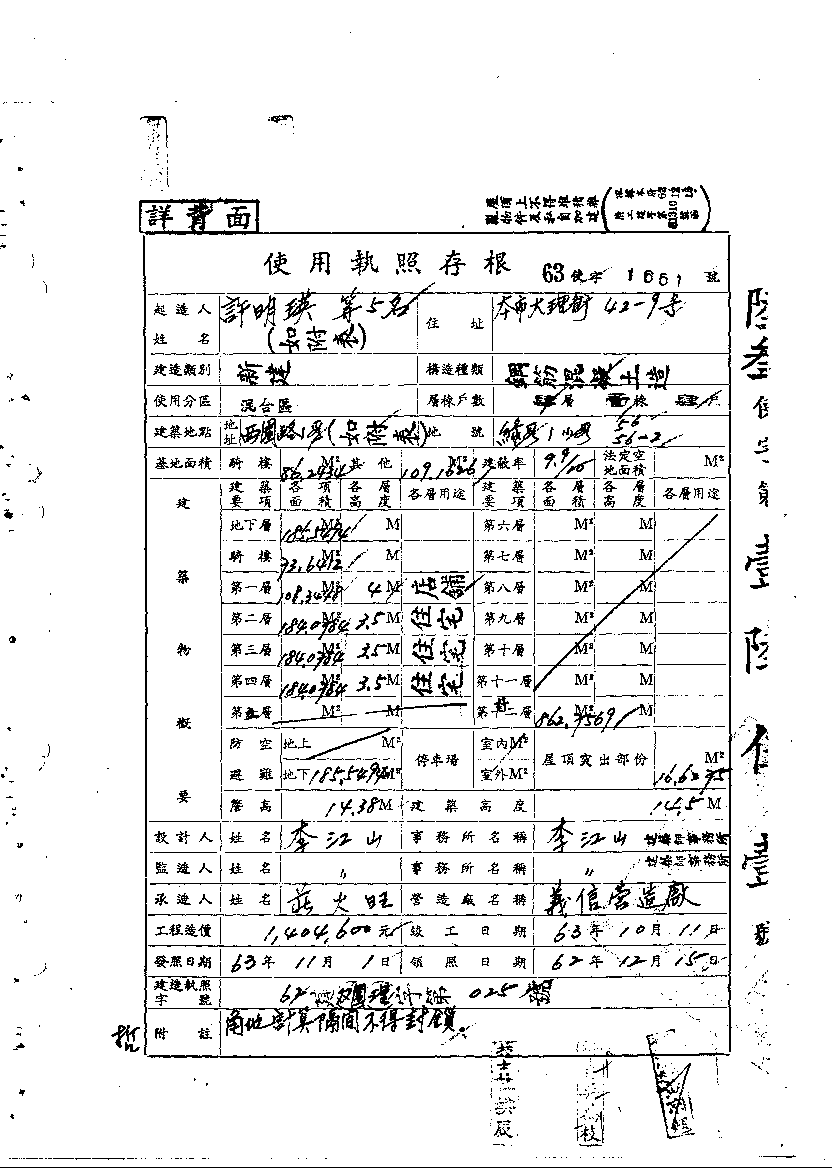 詳背面
使用執照存根 63使字 1661 號
起造人姓名 許明瑛 等5名(如附表) 住址 本市大理街 42-9号
建造類別 新建 構造種類 鋼筋混凝土造
使用分區 混合區 層棟戶數 肆層 壹棟 肆戶
建築地點 地址 西園路1段(如附表) 地號 綠段1小段 56 56-2
基地面積 騎樓 86.2434 M² 其他 109.1626 M² 建蔽率 9.9/10 法定空地面積 M²
建築物概要
建築要項 各項面積 各層高度 各層用途 建築要項 各層面積 各層高度 各層用途
地下層 185.5494 M² M 第六層 M² M
騎樓 73.6412 M² M 第七層 M² M
第一層 108.3448 M² 4 M 店舖 第八層 M² M
第二層 184.0984 M² 3.5 M 住宅 第九層 M² M
第三層 184.0984 M² 3.5 M 住宅 第十層 M² M
第四層 184.0984 M² 3.5 M 住宅 第十一層 M² M
第五層 M² M 第十二層 計 862.7569 M² M
防空避難 地上 M² 停車場 室內 M² 屋頂突出部份 M²
地下 185.5494 M² 室外 M² 16.6275
簷高 14.38 M 建築高度 14.5 M
設計人 姓名 李江山 事務所名稱 李江山 建築師事務所
監造人 姓名 〃 事務所名稱 〃 建築師事務所
承造人 姓名 莊火旺 營造廠名稱 義信營造廠
工程造價 1,404,600元 竣工日期 63年10月11日
發照日期 63年11月1日 領照日期 62年12月15日
建造執照字號 62 字第 025 號
附註 角地計算隔間不得封鎖。